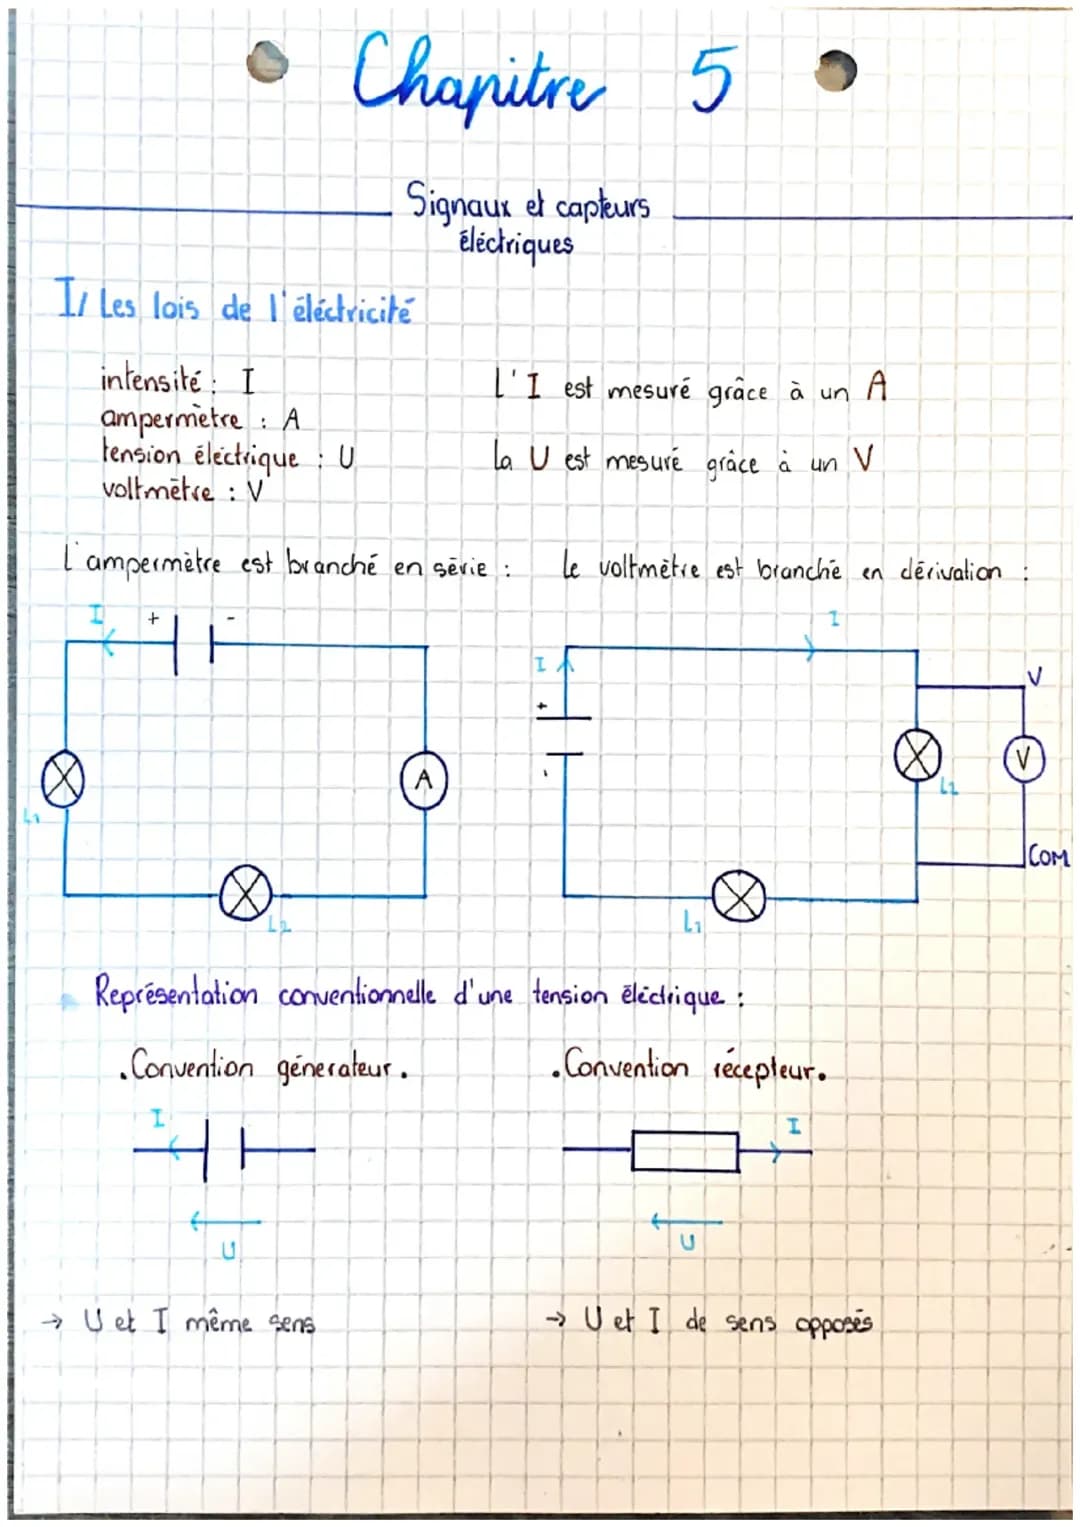 Chapitre 5
Signaux et capteurs
éléctriques
I/ Les lois de l'éléctricité
intensité : I
ampermètre : A
tension éléctrique : U
voltmètre : V
L'I est mesuré grâce à un A
la U est mesuré grâce à un V
L'ampermètre est branché en série :
le voltmètre est branché en dérivation :
I + -
L1
A
L2
I
I
+
-
V
V
L2
COM
L1
Représentation conventionnelle d'une tension éléctrique :
.Convention génerateur.
.Convention récepteur.
I
I
U
U
→ U et I même sens
→ U et I de sens opposés